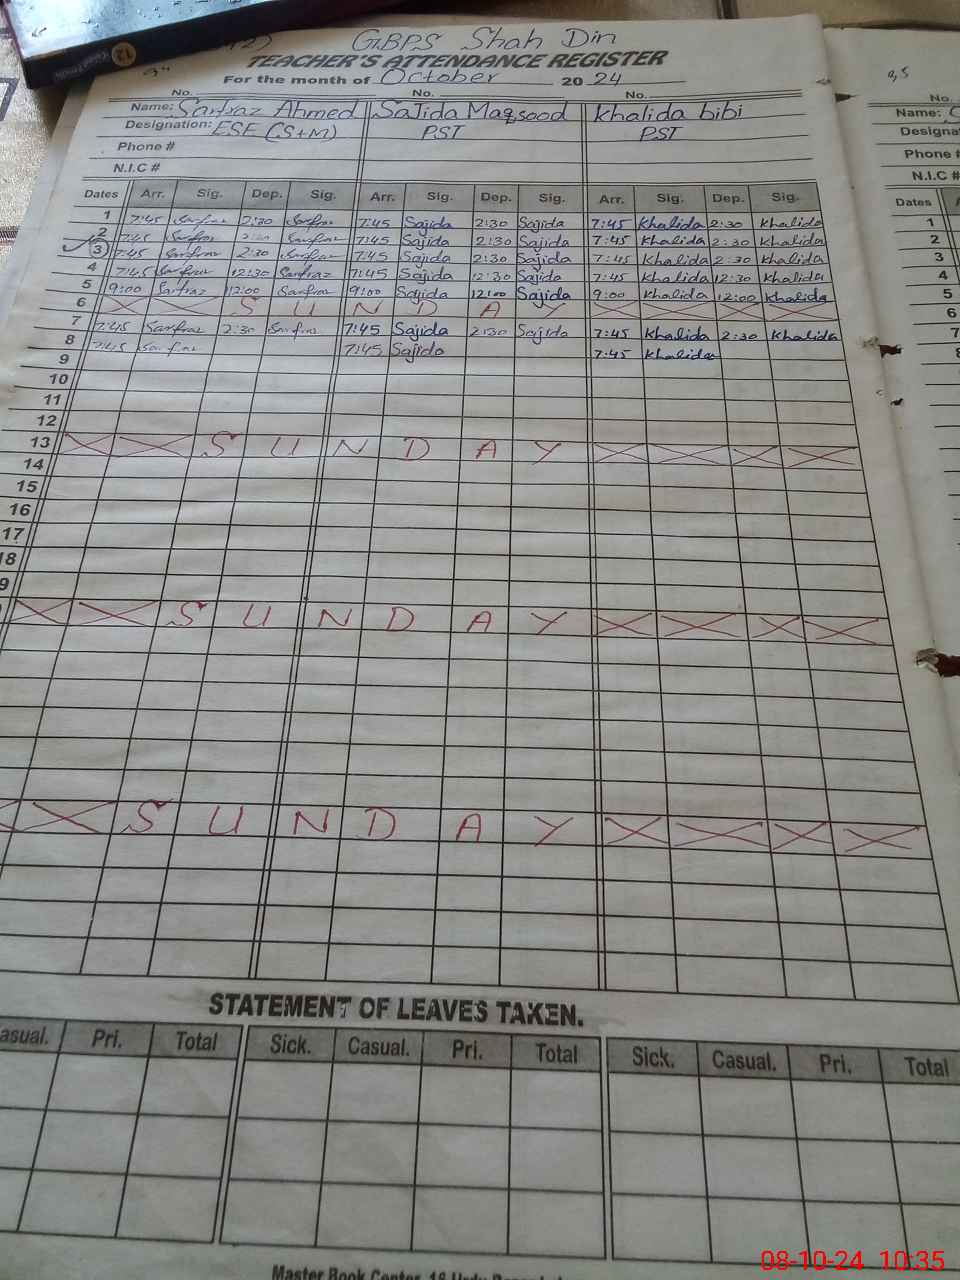 GBPS Shah Din
TEACHER'S ATTENDANCE REGISTER
For the month of October 20 24
No. No. No.
Name: Sarfraz Ahmed Sajida Maqsood Khalida bibi
Designation: ESE (S+M) PST PST
Phone #
N.I.C #
Dates Arr. Sig. Dep. Sig. Arr. Sig. Dep. Sig. Arr. Sig. Dep. Sig.
1 7:45 Sarfraz 2:30 Sarfraz 7:45 Sajida 2:30 Sajida 7:45 Khalida 2:30 Khalida
2 7:45 Sarfraz 2:30 Sarfraz 7:45 Sajida 2:30 Sajida 7:45 Khalida 2:30 Khalida
3 7:45 Sarfraz 2:30 Sarfraz 7:45 Sajida 2:30 Sajida 7:45 Khalida 2:30 Khalida
4 7:45 Sarfraz 12:30 Sarfraz 7:45 Sajida 12:30 Sajida 7:45 Khalida 12:30 Khalida
5 9:00 Sarfraz 12:00 Sarfraz 9:00 Sajida 12:00 Sajida 9:00 Khalida 12:00 Khalida
6 S U N D A Y
7 7:45 Sarfraz 2:30 Sarfraz 7:45 Sajida 2:30 Sajida 7:45 Khalida 2:30 Khalida
8 7:45 Sarfraz 7:45 Sajida 7:45 Khalida
9
10
11
12
13 S U N D A Y
14
15
16
17
18
9
S U N D A Y
S U N D A Y
STATEMENT OF LEAVES TAKEN.
asual. Pri. Total Sick. Casual. Pri. Total Sick. Casual. Pri. Total
Master Book Center
No.
Name:
Designa
Phone #
N.I.C #
Dates
1
2
3
4
5
6
7
8
12
08-10-24 10:35